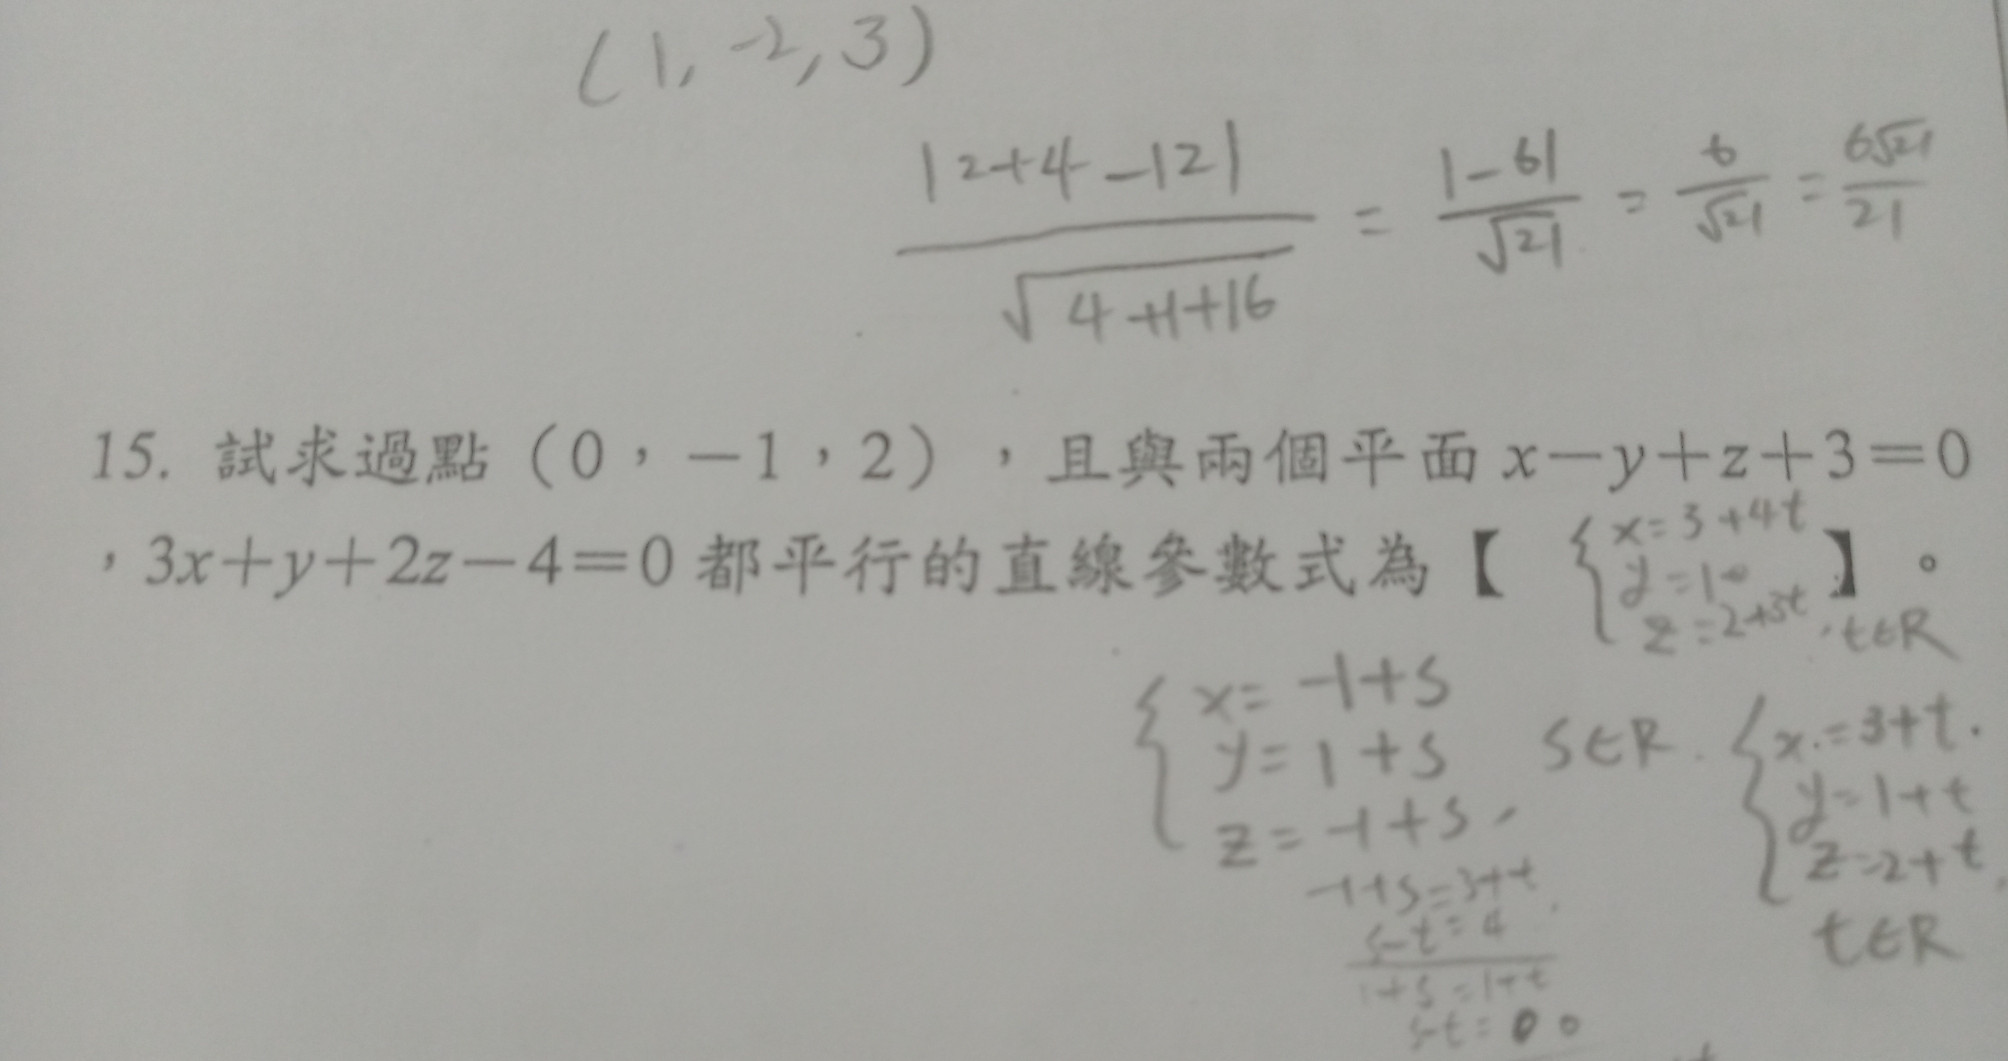 (1, -2, 3)
|2+4-12| / √4+1+16 = |-6| / √21 = 6/√21 = 6√21/21
15. 試求過點(0,-1,2),且與兩個平面 x-y+z+3=0
,3x+y+2z-4=0 都平行的直線參數式為【 】。
{ x=3+4t
y=1
z=2+3t, t∈R
{ x=-1+s
y=1+s
z=-1+s, s∈R.
{ x=3+t.
y=1+t
z=2+t, t∈R
-1+s=3+t
s-t=4
1+s=1+t
s-t=0